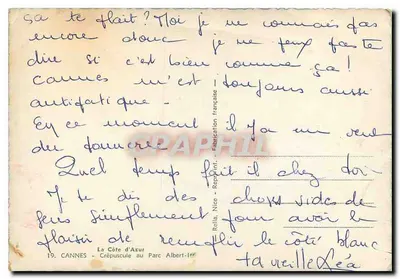 ça te plait? Moi je ne connais pas
encore donc je ne peux pas te
dire si c'est bien comme ça!
Cannes m'est toujours aussi
antipatique -
En ce moment il y a un vent
du tonnerre
Quel temps fait il chez toi
Je te dis des choses vides de
sens simplement pour avoir le
plaisir de remplir le côté blanc
ta vieille Léa
La Côte d'Azur
19. CANNES - Crépuscule au Parc Albert-1er
Rella, Nice - Fabrication française